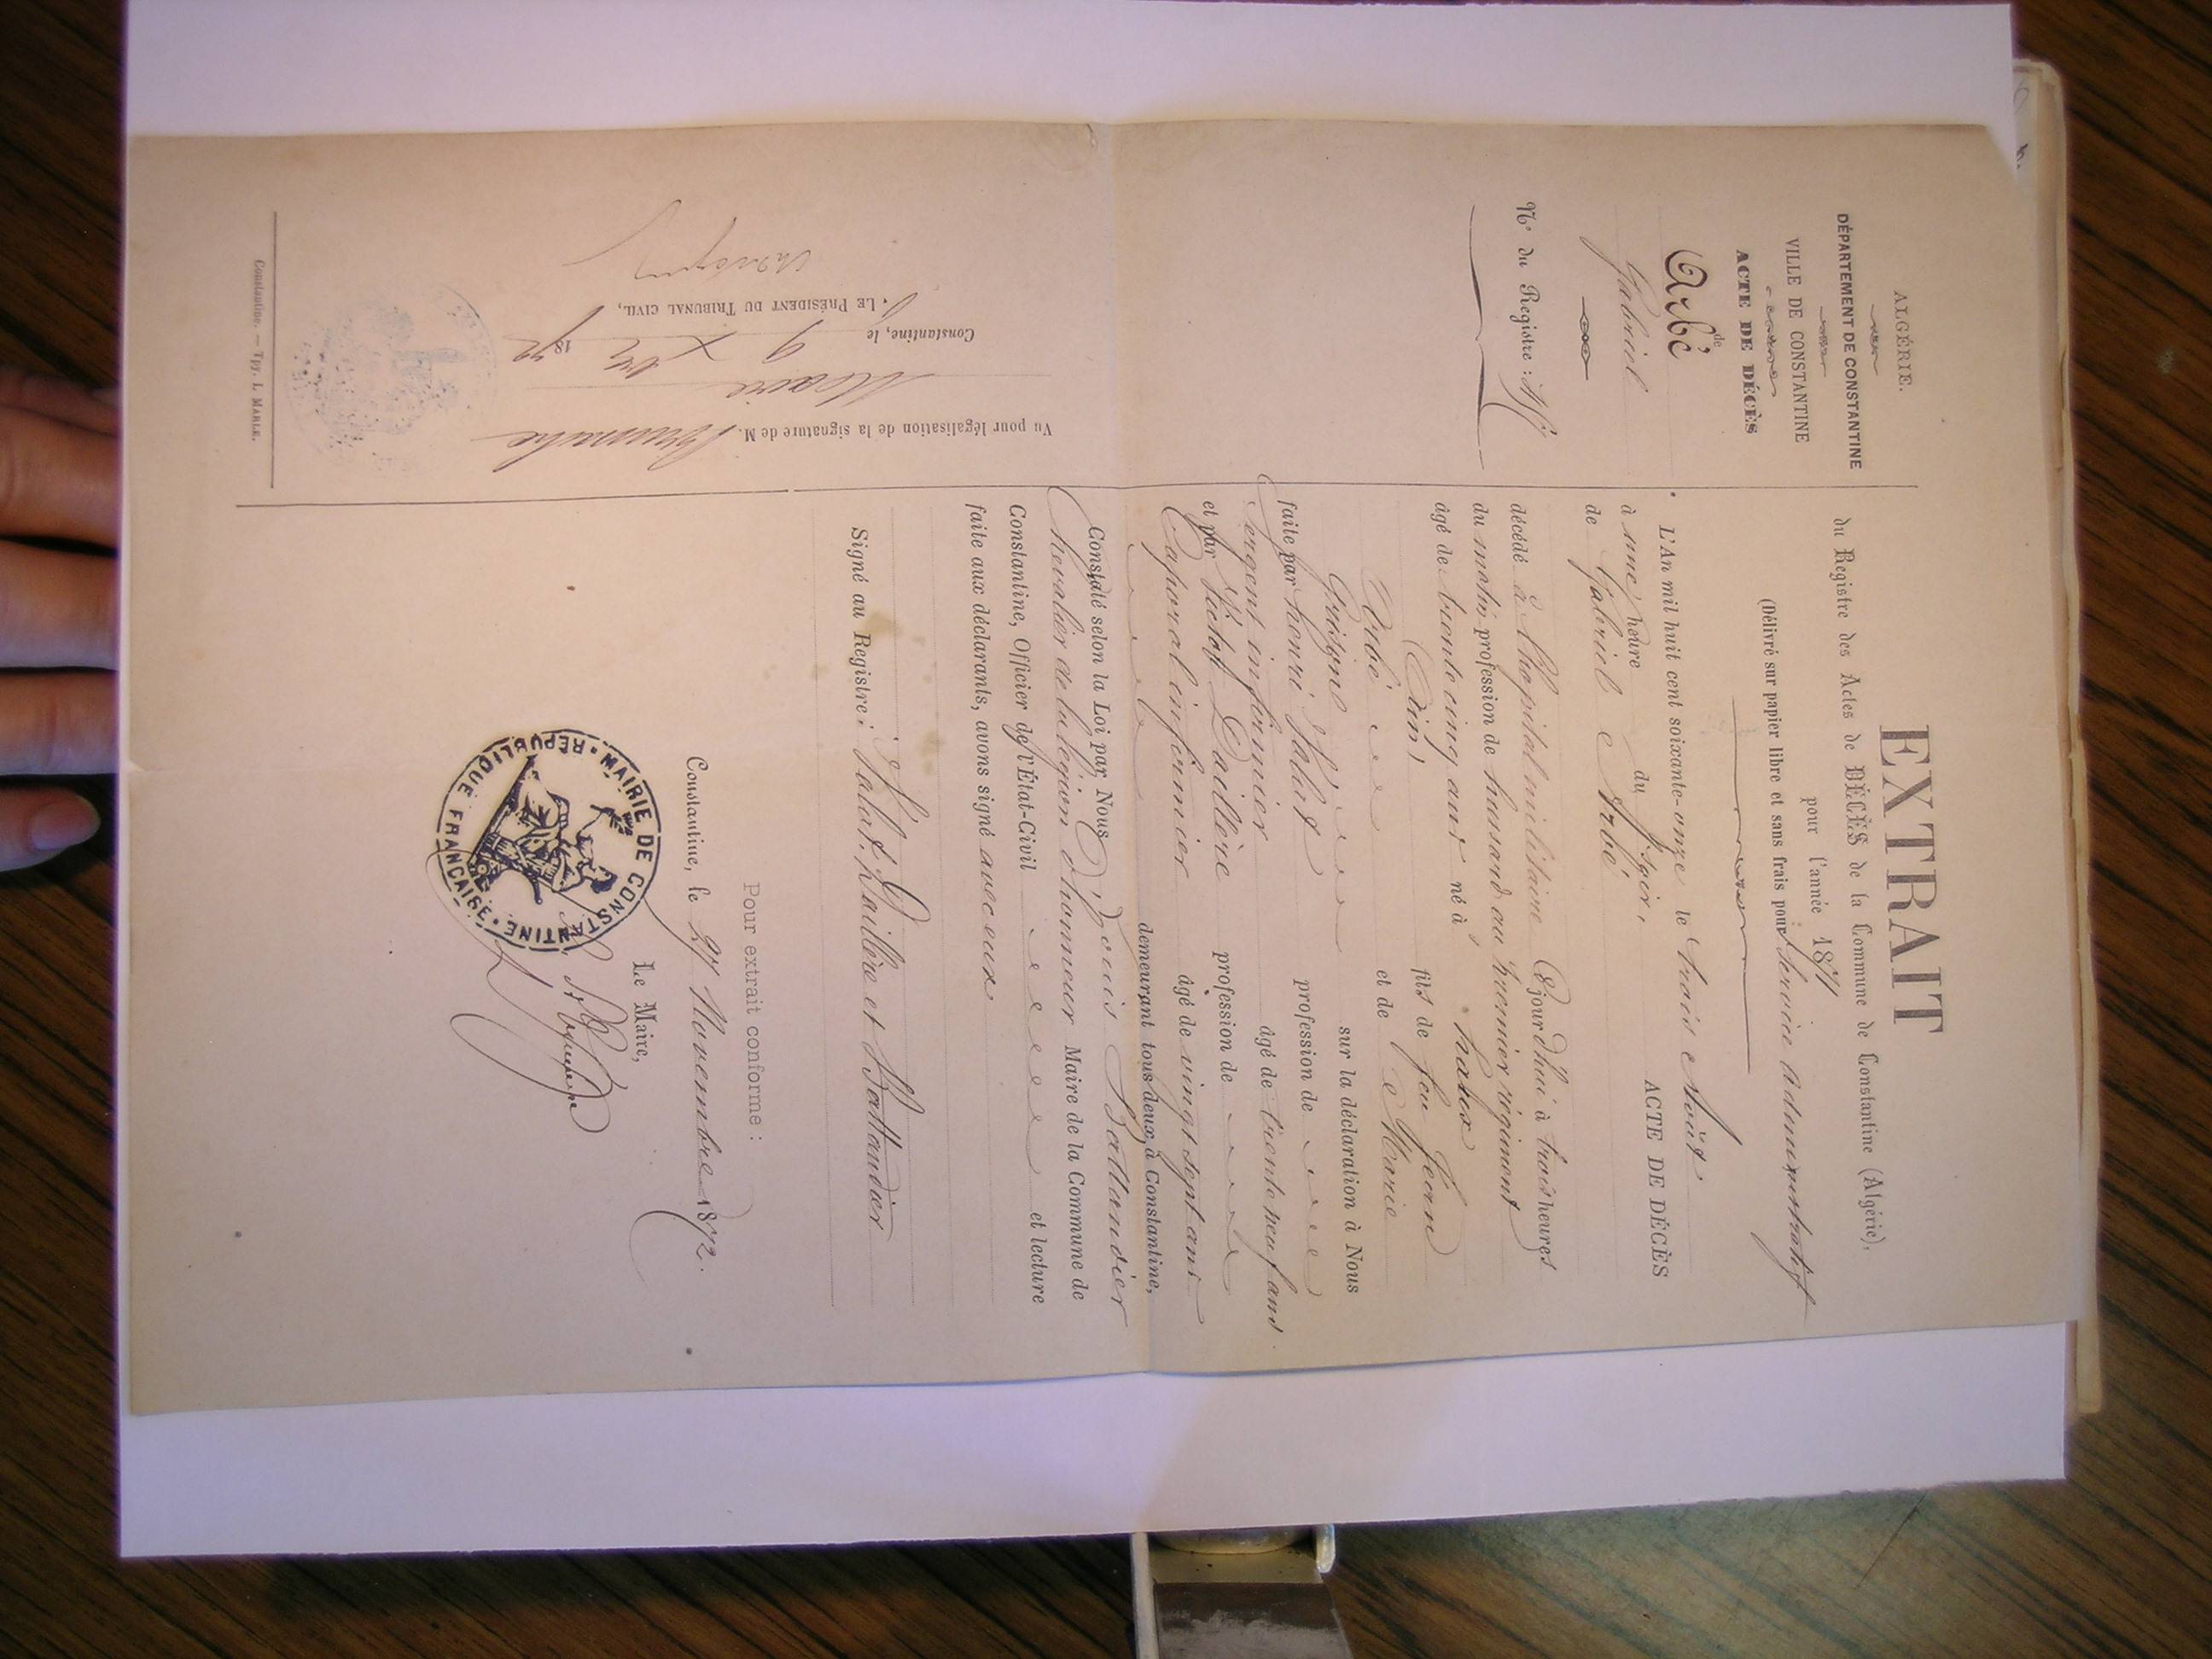 ALGÉRIE.
DÉPARTEMENT DE CONSTANTINE
VILLE DE CONSTANTINE
ACTE DE DÉCÈS
de
Arbé
Gabriel
N° du Registre :
Vu pour légalisation de la signature de M.
Maire
Constantine, le 9 Xbre 1872
LE PRÉSIDENT DU TRIBUNAL CIVIL,
Constantine. — Typ. L. MARLE.
EXTRAIT
du Registre des Actes de DÉCÈS de la Commune de Constantine (Algérie),
pour l'année 1871
(Délivré sur papier libre et sans frais pour Service administratif
ACTE DE DÉCÈS
L'An mil huit cent soixante-onze le trois Août
à une heure du soir,
de Gabriel Arbé
décédé à l'hopital militaire ce jourd'hui à trois heures
du matin profession de hussard au premier régiment
âgé de trente cinq ans né à
(Ain) fils de feu Jean
Arbé et de Marie
sur la déclaration à Nous
faite par henri Salat profession de
Sergent infirmier âgé de trente neuf ans
et par Victor Daillère profession de
Caporal infirmier âgé de vingt sept ans
demeurant tous deux à Constantine,
Constaté selon la Loi par Nous Louis Battandier
Chevalier de la légion d'honneur Maire de la Commune de
Constantine, Officier de l'État-Civil et lecture
faite aux déclarants, avons signé avec eux
Signé au Registre : Salat, Daillère et Battandier
Pour extrait conforme :
Constantine, le 27 Novembre 1872.
Le Maire,
MAIRIE DE CONSTANTINE • RÉPUBLIQUE FRANÇAISE •